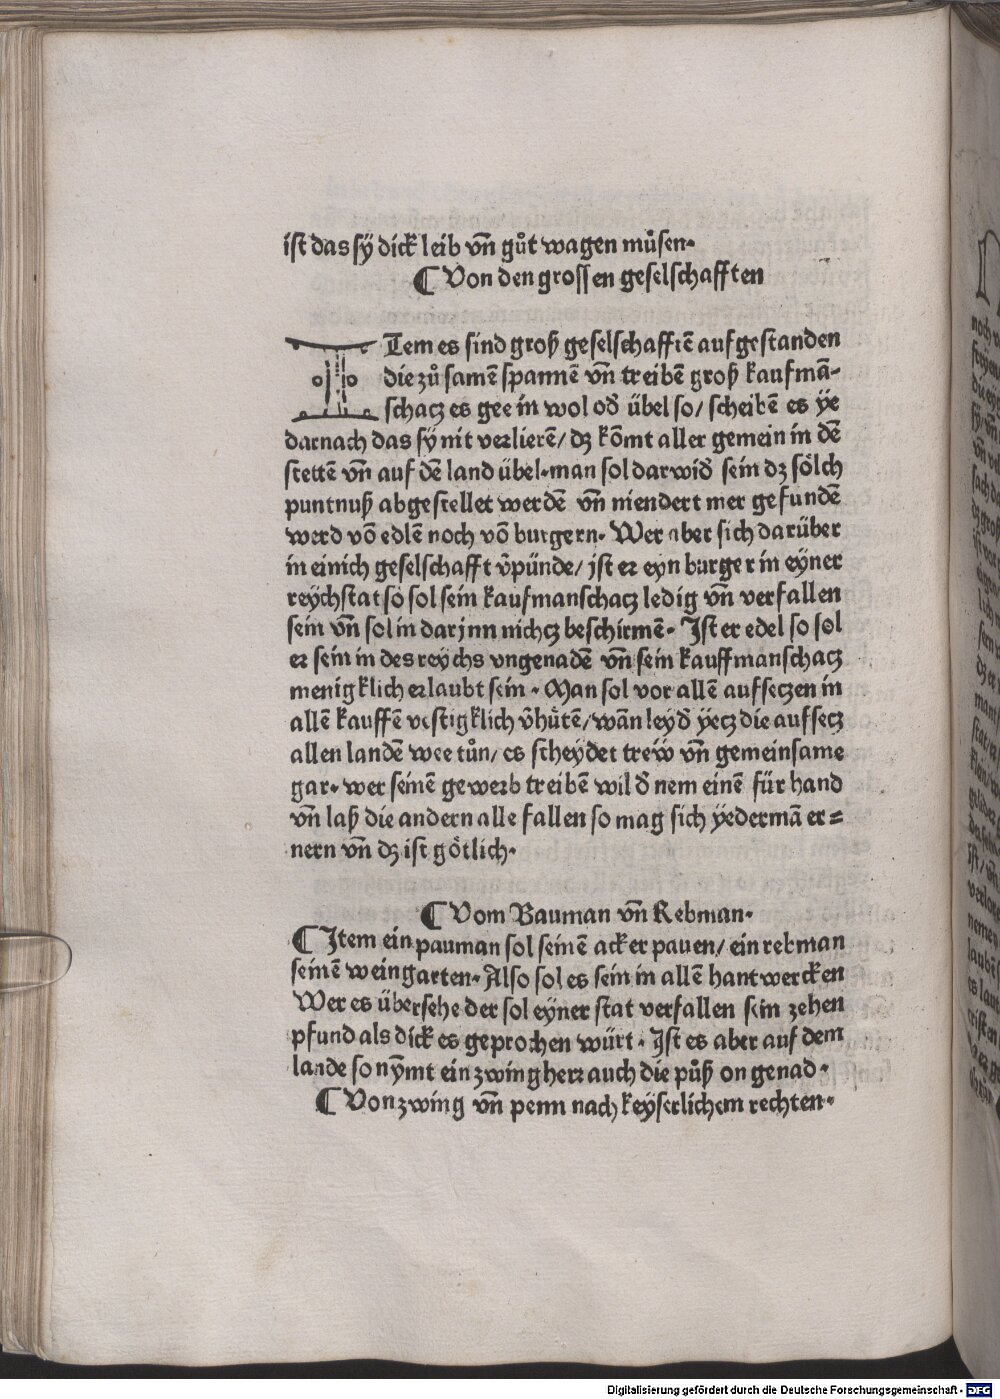 ist das sÿ dick leib vñ gůt wagen můsen.
¶ Von den grossen geselschafften
ITem es sind groß geselschafftē auf gestanden
die zů samē spannē vñ treibē groß kaufmā-
schacz es gee in wol od̄ übel so/ scheibē es ÿe
darnach das sÿ nit verlierē/ dz kōmt aller gemein in dē
stettē vñ auf dē land übel. man sol dar wid̄ sein dz sölch
puntnuß abgestellet werdē vñ niendert mer gefundē
werd vō edlē noch vō burgern. Wer aber sich darüber
in einich geselschafft v̄pünde/ jst er eyn burger in eÿner
reychstat so sol sein kaufmanschacz ledig vñ verfallen
sein vñ sol in darjnn nichcz beschirmē. Jst er edel so sol
er sein in des reychs vngenadē vñ sein kauffmanschacz
menigklich erlaubt sein. Man sol vor allē aufseczen in
allē kauffē vestigklich v̄hütē/ wān leyd̄ ÿecz die aufsecz
allen landē wee tůn/ es scheÿdet treẅ vñ gemeinsame
gar. wer seinē gewerb treibē wil d̄ nem einē für hand
vñ laß die andern alle fallen so mag sich ÿedermā er=
nern vñ dz ist götlich.
¶ Vom Bauman vñ Rebman.
¶ Jtem ein pauman sol seinē acker pauen/ ein rebman
seinē weingarten. Also sol es sein in allē hantwercken
Wer es übersehe der sol eÿner stat verfallen sein zehen
pfund als dick es geprochen würt. Jst es aber auf dem
lande so nÿmt ein zwingherr auch die půß on genad.
¶ Von zwing vñ penn nach keÿserlichem rechten.
Digitalisierung gefördert durch die Deutsche Forschungsgemeinschaft - DFG